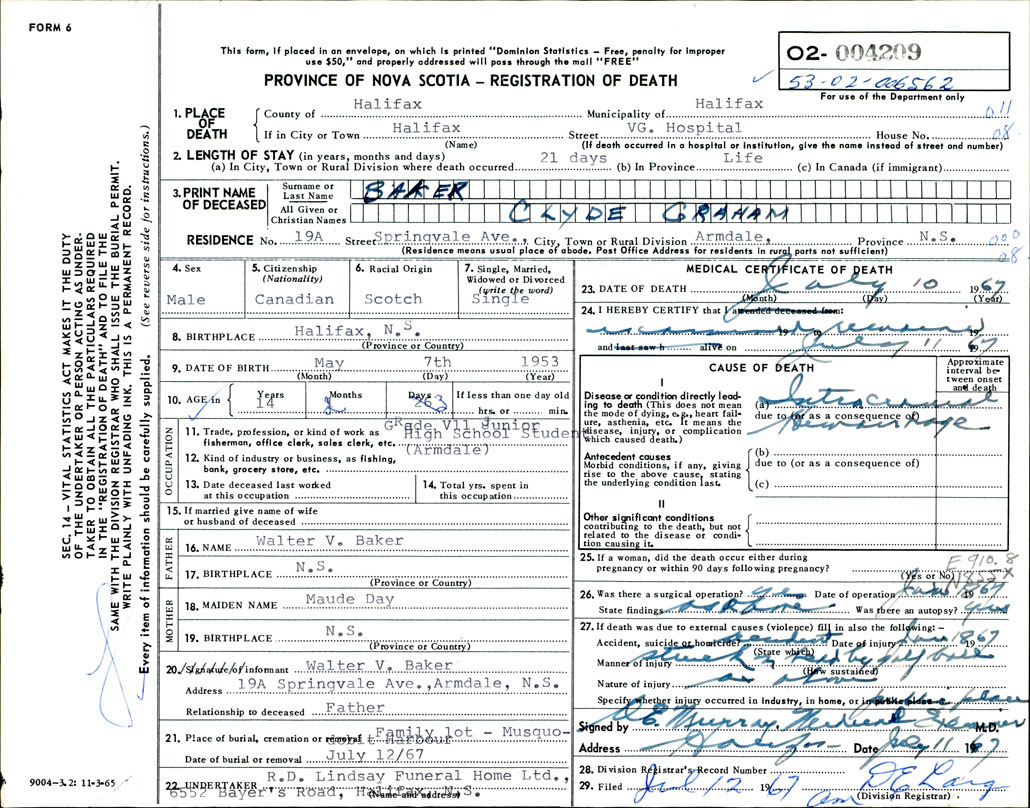 FORM 6
This form, if placed in an envelope, on which is printed "Dominion Statistics – Free, penalty for improper
use $50," and properly addressed will pass through the mail "FREE"
PROVINCE OF NOVA SCOTIA – REGISTRATION OF DEATH
02- 004209
53-02-006562
For use of the Department only
1. PLACE OF DEATH
County of Halifax Municipality of Halifax 011
If in City or Town Halifax Street VG. Hospital House No. 08
(Name) (If death occurred in a hospital or institution, give the name instead of street and number)
2. LENGTH OF STAY (in years, months and days)
(a) In City, Town or Rural Division where death occurred 21 days (b) In Province Life (c) In Canada (if immigrant)
3. PRINT NAME OF DECEASED
Surname or Last Name BAKER
All Given or Christian Names CLYDE GRAHAM
RESIDENCE No. 19A Street Springvale Ave., City, Town or Rural Division Armdale, Province N.S. 000
(Residence means usual place of abode. Post Office Address for residents in rural parts not sufficient) 08
SEC. 14 – VITAL STATISTICS ACT MAKES IT THE DUTY
OF THE UNDERTAKER OR PERSON ACTING AS UNDER-
TAKER TO OBTAIN ALL THE PARTICULARS REQUIRED
IN THE "REGISTRATION OF DEATH" AND TO FILE THE
SAME WITH THE DIVISION REGISTRAR WHO SHALL ISSUE THE BURIAL PERMIT.
WRITE PLAINLY WITH UNFADING INK. THIS IS A PERMANENT RECORD.
Every item of information should be carefully supplied. (See reverse side for instructions.)
4. Sex
Male
5. Citizenship
(Nationality)
Canadian
6. Racial Origin
Scotch
7. Single, Married,
Widowed or Divorced
(write the word)
Single
8. BIRTHPLACE Halifax, N.S.
(Province or Country)
9. DATE OF BIRTH May 7th 1953
(Month) (Day) (Year)
10. AGE in Years Months Days If less than one day old
14 2 3 hrs. or min.
OCCUPATION
11. Trade, profession, or kind of work as
fisherman, office clerk, sales clerk, etc.
Grade VII Junior
High School Student
(Armdale)
12. Kind of industry or business, as fishing,
bank, grocery store, etc.
13. Date deceased last worked
at this occupation
14. Total yrs. spent in
this occupation
15. If married give name of wife
or husband of deceased
FATHER
16. NAME Walter V. Baker
17. BIRTHPLACE N.S.
(Province or Country)
MOTHER
18. MAIDEN NAME Maude Day
19. BIRTHPLACE N.S.
(Province or Country)
20. Signature of informant Walter V. Baker
Address 19A Springvale Ave.,Armdale, N.S.
Relationship to deceased Father
21. Place of burial, cremation or removal Family lot - Musquo-
doboit Harbour
Date of burial or removal July 12/67
22. UNDERTAKER R.D. Lindsay Funeral Home Ltd.,
6552 Bayer's Road, Halifax, N.S.
(Name and address)
9004–3.2: 11-3-65
MEDICAL CERTIFICATE OF DEATH
23. DATE OF DEATH July 10 1967
(Month) (Day) (Year)
24. I HEREBY CERTIFY that I attended deceased from:
19 to 19
and last saw h alive on July 11 1967
CAUSE OF DEATH
Approximate
interval be-
tween onset
and death
I
Disease or condition directly lead-
ing to death (This does not mean
the mode of dying, e.g., heart fail-
ure, asthenia, etc. It means the
disease, injury, or complication
which caused death.)
(a) Intracranial
due to (or as a consequence of)
Hemorrhage
Antecedent causes
Morbid conditions, if any, giving
rise to the above cause, stating
the underlying condition last.
(b)
due to (or as a consequence of)
(c)
II
Other significant conditions
contributing to the death, but not
related to the disease or condi-
tion causing it.
25. If a woman, did the death occur either during
pregnancy or within 90 days following pregnancy?
(Yes or No)
E 910.8
26. Was there a surgical operation? yes Date of operation June 1967
State findings as above Was there an autopsy? yes
27. If death was due to external causes (violence) fill in also the following: –
Accident, suicide or homicide? accident Date of injury June 18 1967
(State which)
Manner of injury struck in head by golf ball
(How sustained)
Nature of injury as above
Specify whether injury occurred in Industry, in home, or in public place. public place
Signed by Murray, Medical Examiner M.D.
Address Halifax Date July 11 1967
28. Division Registrar's Record Number
29. Filed Jul 12 1967
(Division Registrar)